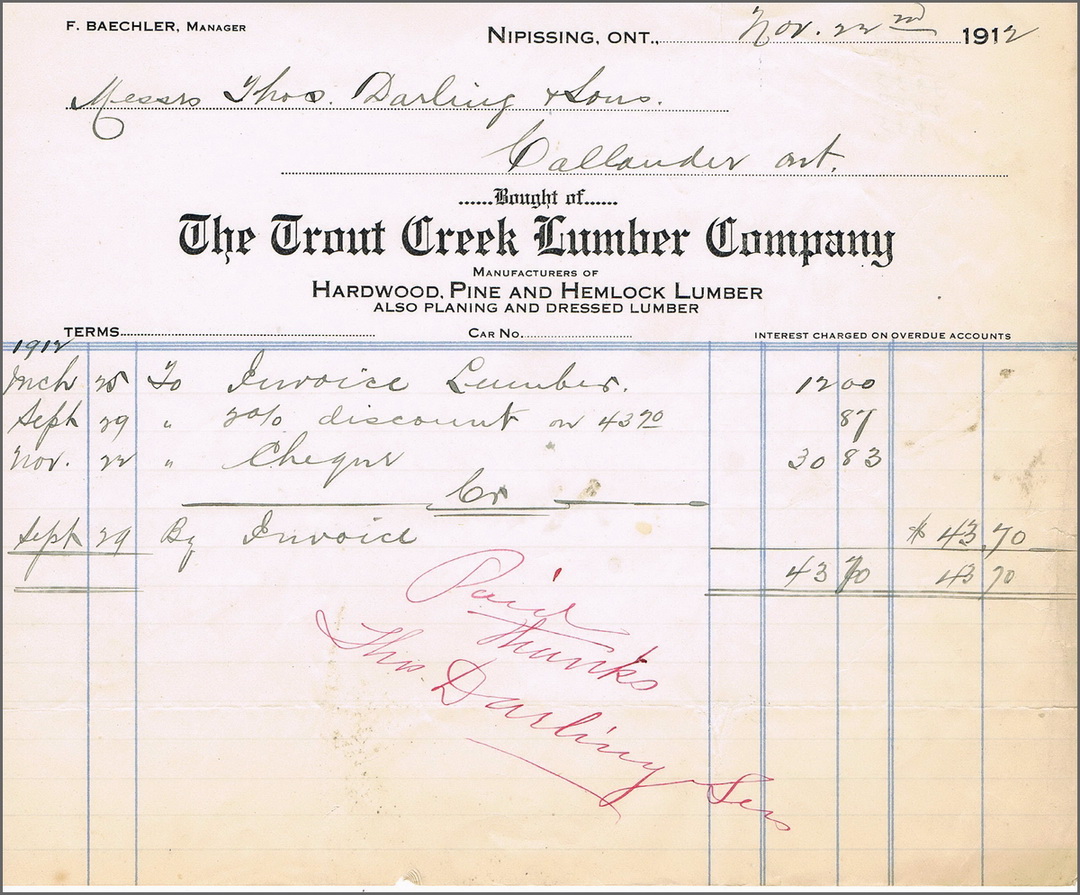 F. BAECHLER, MANAGER
NIPISSING, ONT., Nov. 22nd 1912
Messrs Thos. Darling & Sons.
Callander ont.
......Bought of......
The Trout Creek Lumber Company
MANUFACTURERS OF
HARDWOOD, PINE AND HEMLOCK LUMBER
ALSO PLANING AND DRESSED LUMBER
TERMS CAR NO. INTEREST CHARGED ON OVERDUE ACCOUNTS
1912
Mch 25 To Invoice Lumber. 12 00
Sept 29 " 2% discount on 43 70 87
Nov. 22 " Cheque 30 83
Cr
Sept 29 By Invoice $ 43.70
43 70 43 70
Paid
Thanks
Thos. Darling Sons